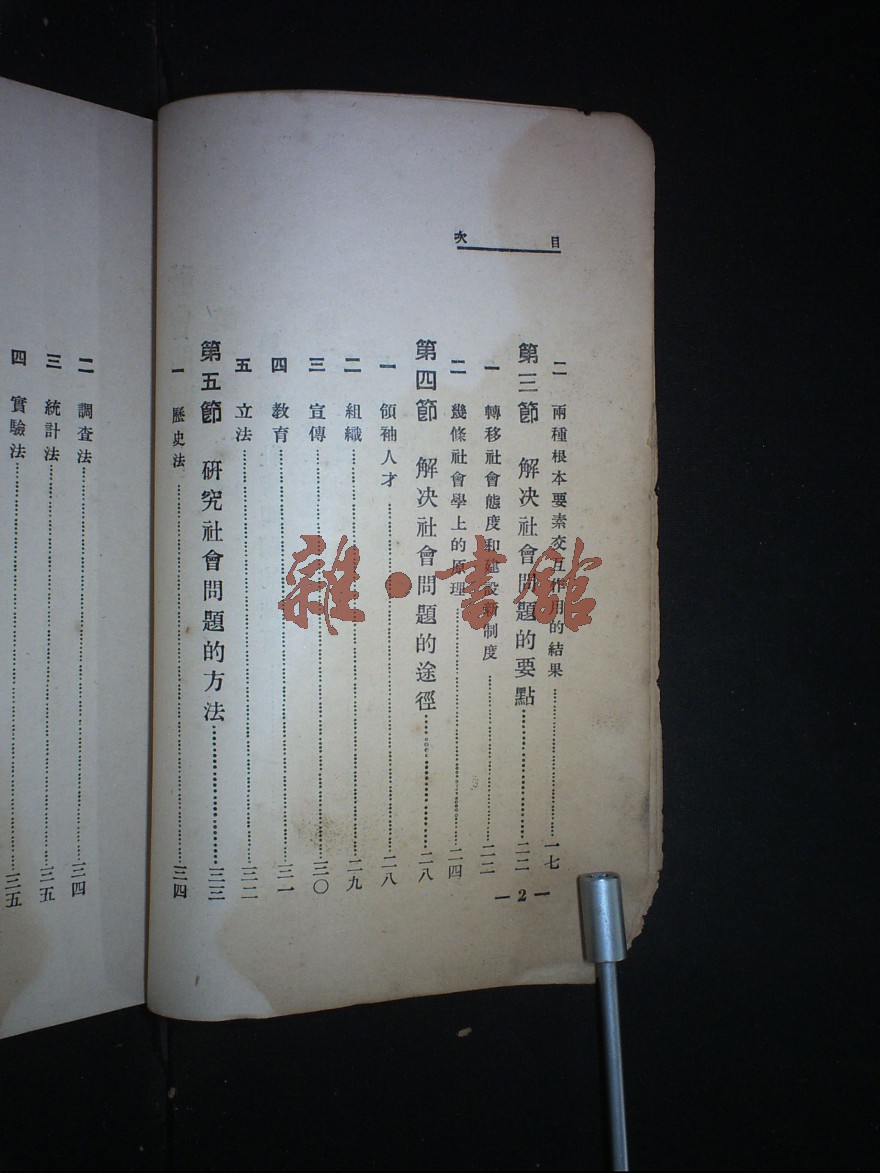 目次
二 兩種根本要素交互作用的結果……一七
第三節 解决社會問題的要點……二二
一 轉移社會態度和建設新制度……二二
二 幾條社會學上的原理……二四
第四節 解决社會問題的途徑……二八
一 領袖人才……二八
二 組織……二九
三 宣傳……三〇
四 教育……三一
五 立法……三二
第五節 研究社會問題的方法……三三
一 歷史法……三四
— 2 —
二 調查法……三四
三 統計法……三五
四 實驗法……三五
雜·書館